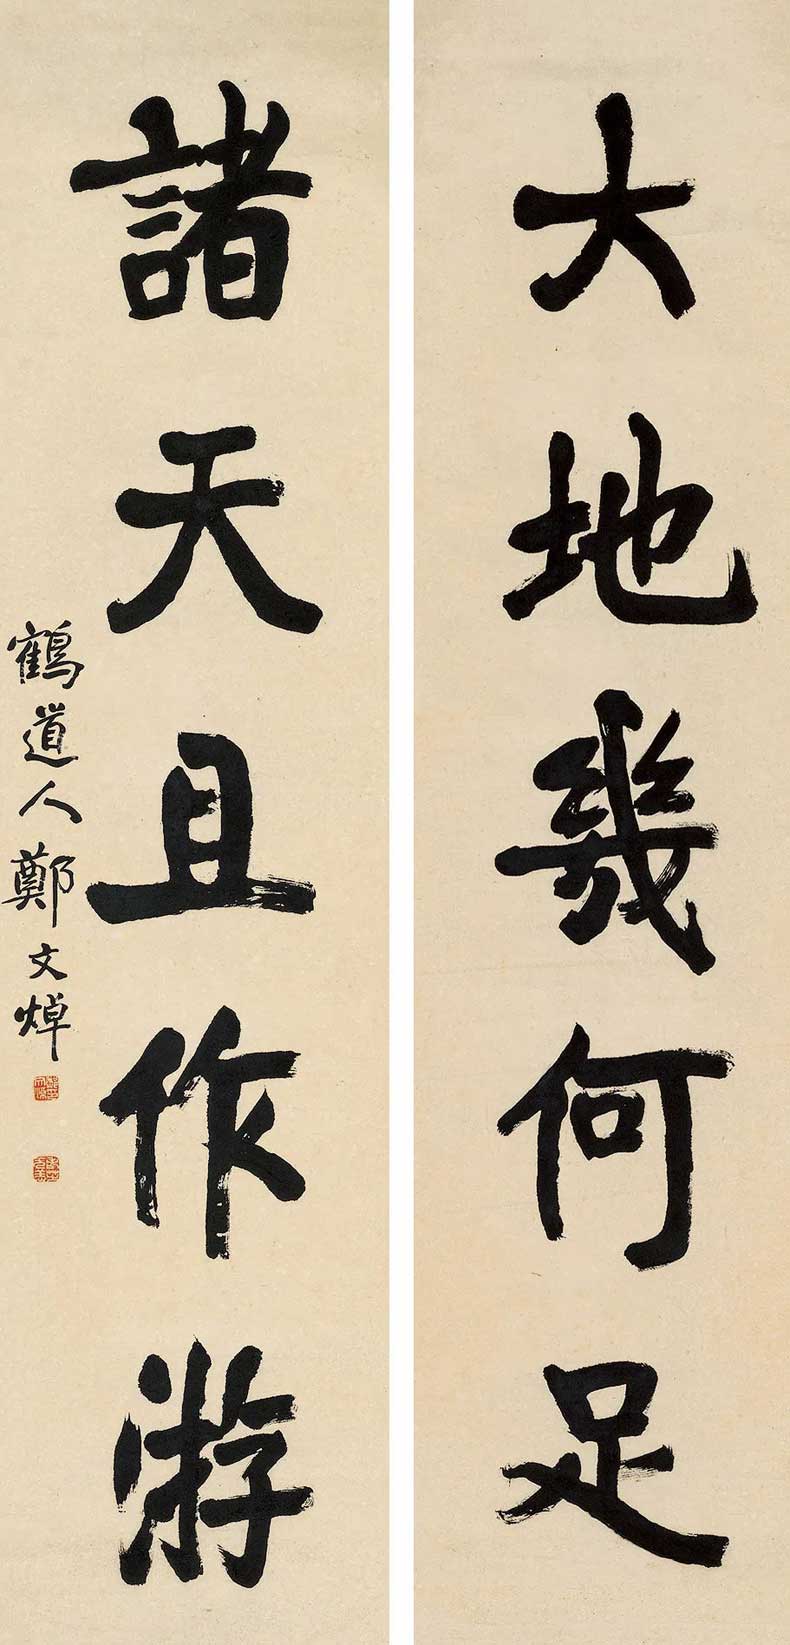 大地幾何足
諸天且作游
鶴道人鄭文焯